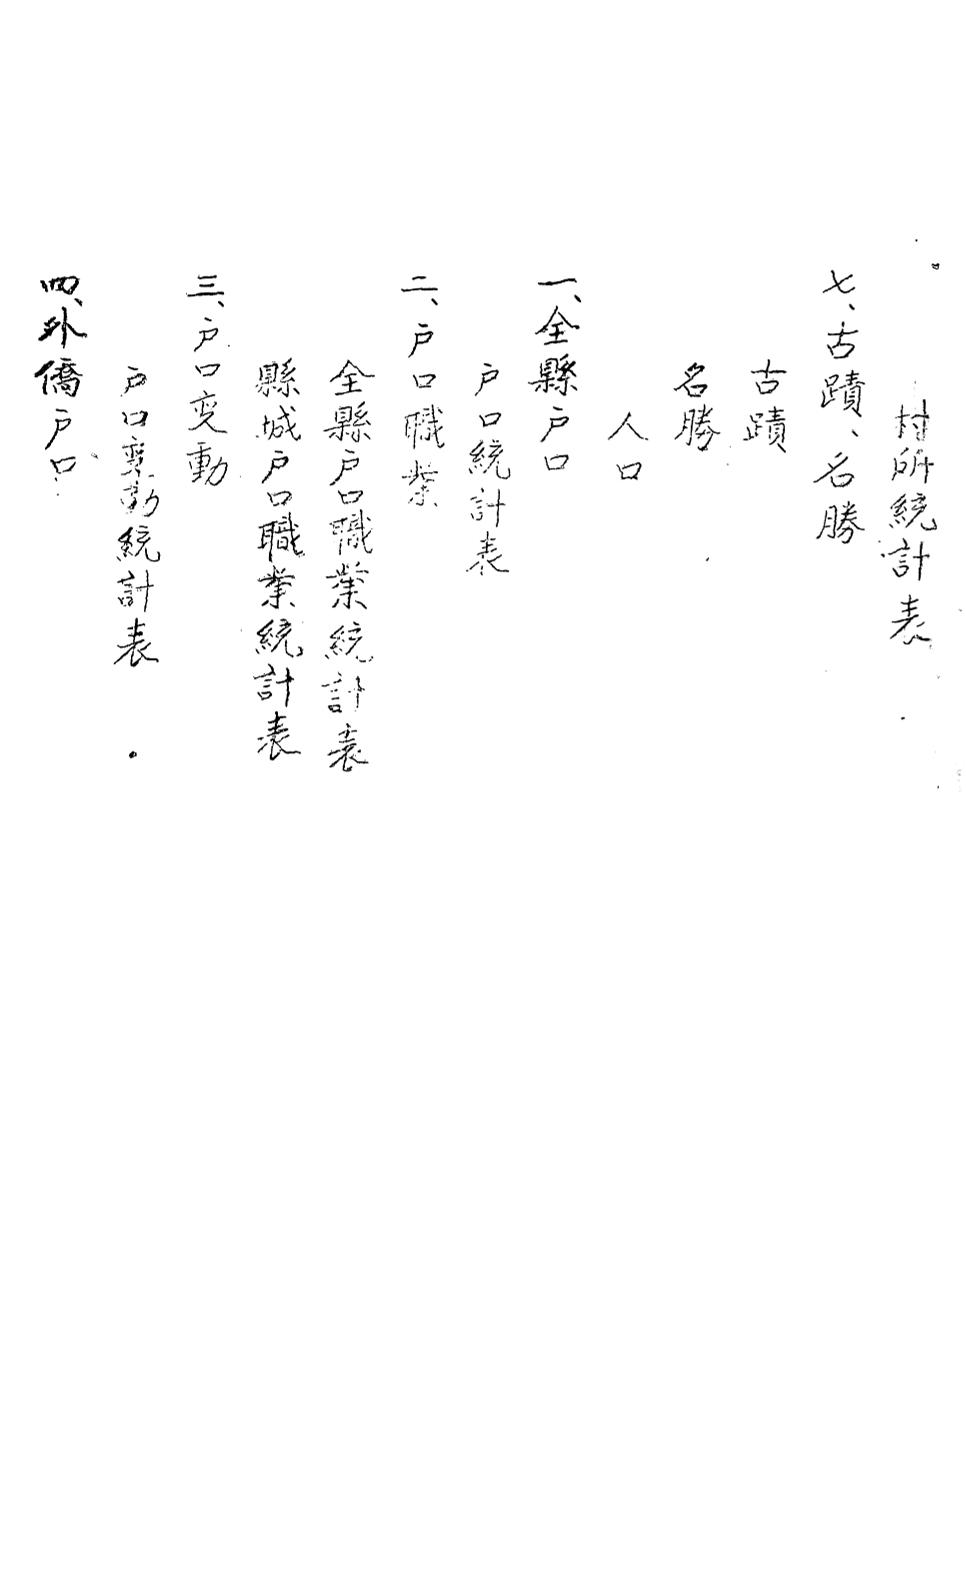 村所統計表
七、古蹟、名勝
古蹟
名勝
人口
一、全縣户口
户口統計表
二、户口職業
全縣户口職業統計表
縣城户口職業統計表
三、户口变動
户口変動統計表
四、外僑户口